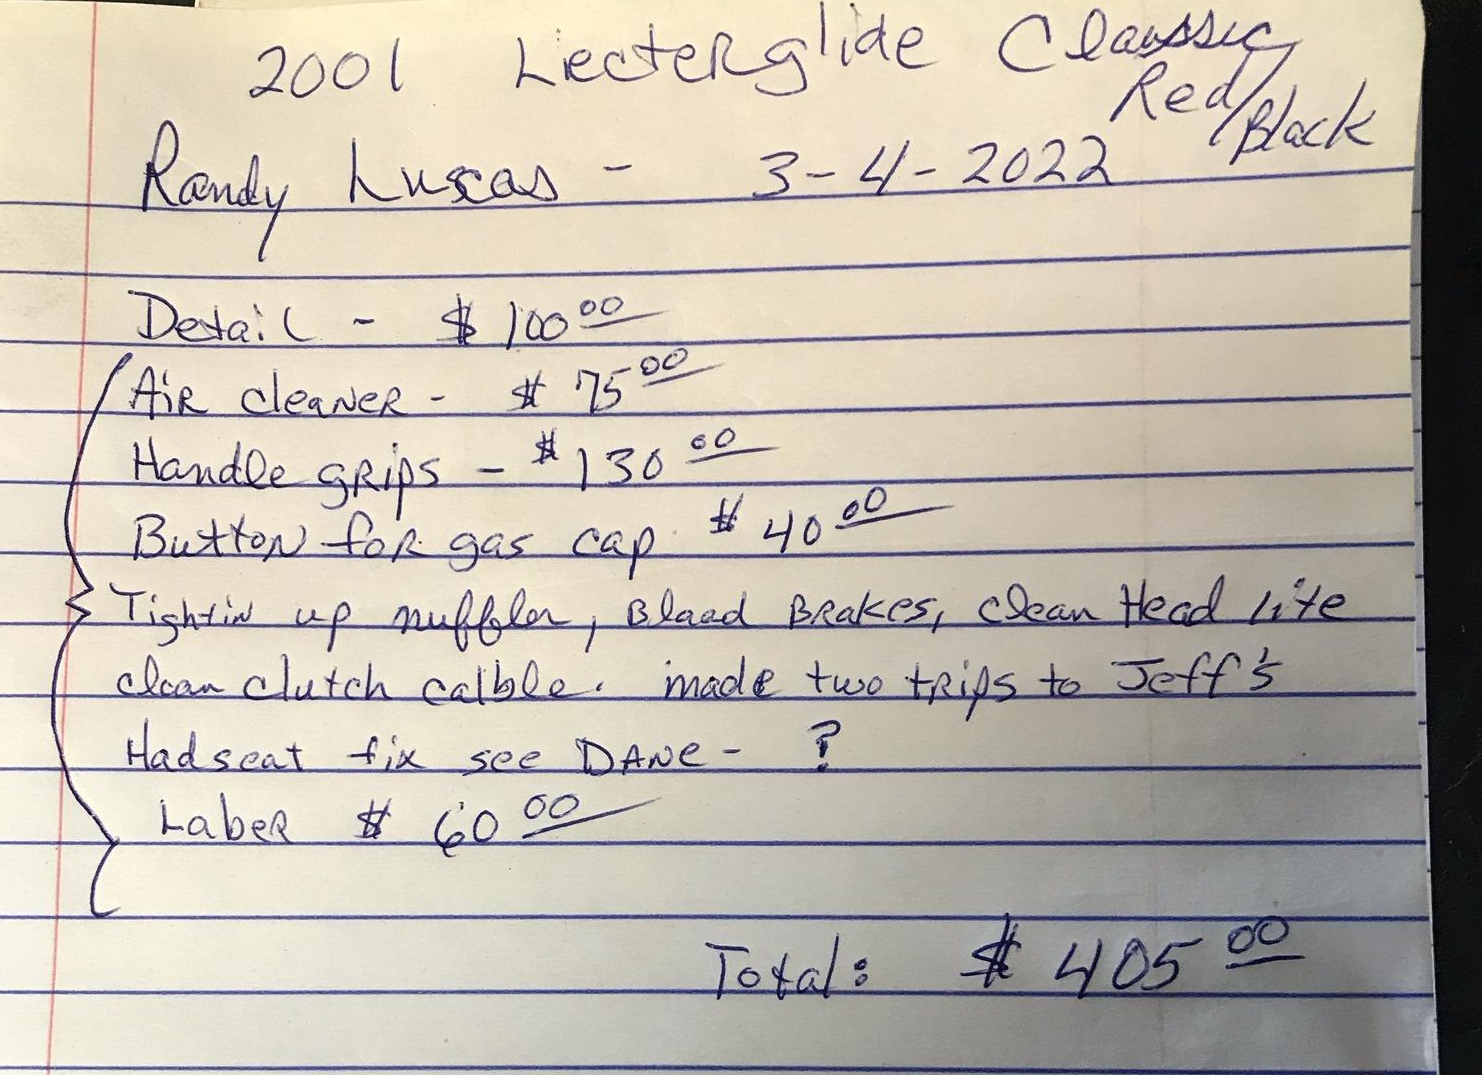 2001 Lecterglide Claussic
Red/Black
Randy Luscas - 3-4-2022
Detail - $ 100 00
Air cleaner - $ 75 00
Handle grips - $ 130 00
Button for gas cap $ 40 00
Tightin up nuffler, Blaed Brakes, clean Head lite
clean clutch calble. made two trips to Jeff's
Had seat fix see DANe - ?
Laber $ 60 00
Total: $ 405 00